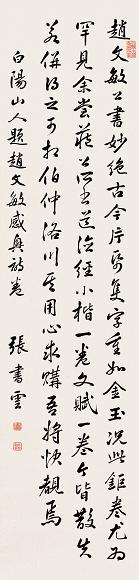 趙文敏公書妙絕古今片紙隻字重如金玉況此鉅卷尤為
罕見余嘗藏公書道德經小楷一卷文賦一卷今皆散失
若併得之可相伯仲洛川其用心求購吾將快覩焉
白陽山人題趙文敏感興詩卷
張書雲